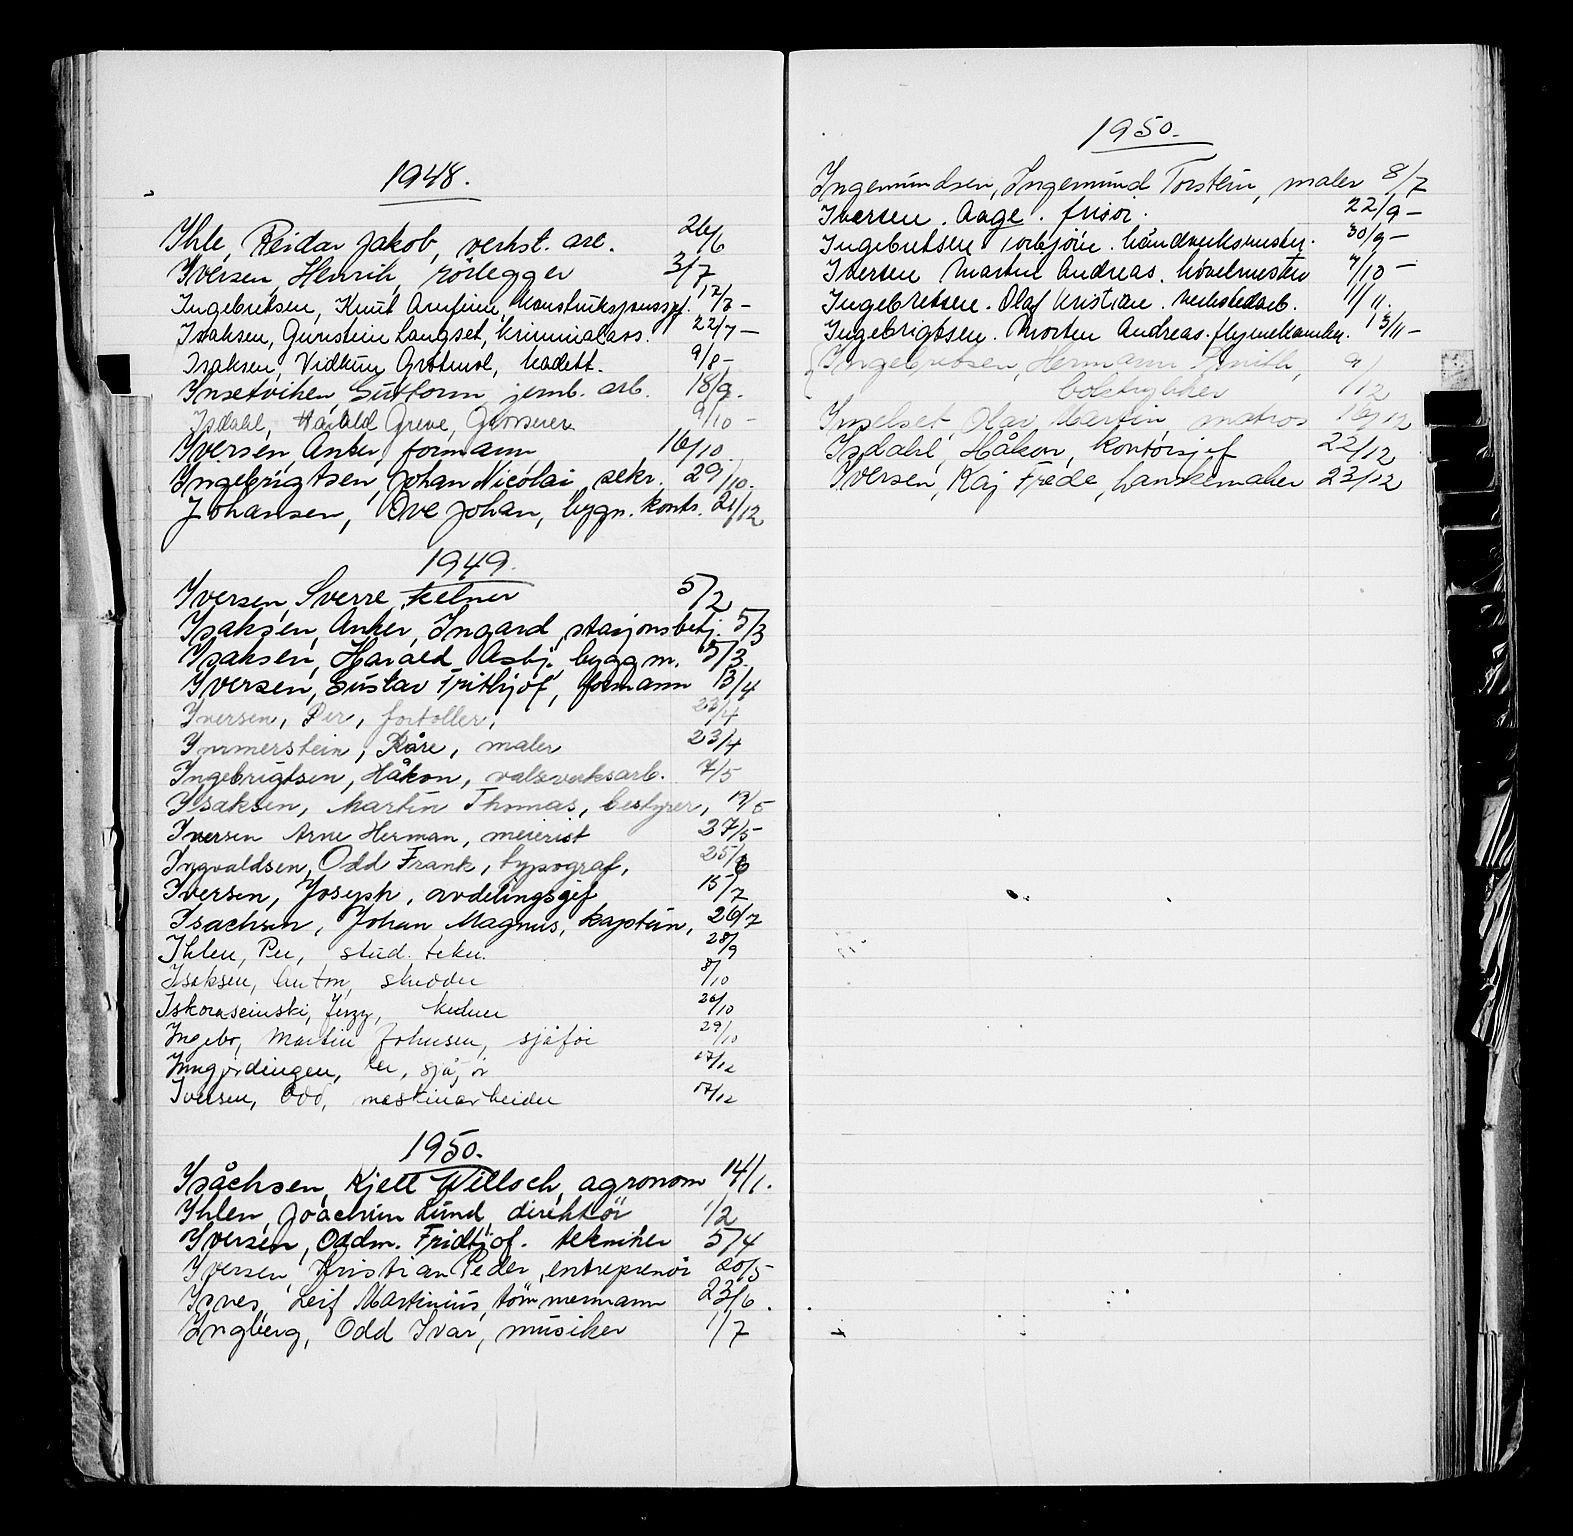 1948.
Ihle, Reidar Jakob, verkst. arb. 26/6
Iversen, Henrik, rörlegger 3/7
Ingebretsen, Knut Arnfinn, 17/7 -
Isaksen, Gunstein Langset, kriminalass. 22/7 -
Isaksen, Vidkun Grötmol, kadett. 9/8 -
Insetviken, Guttorm, jernb. arb. 18/9.
Isdahl, Harald Greve, Grosserer 9/10 -
Iversen, Anker, formann 16/10.
Ingebrigtsen, Johan Nicolai, sekr. 29/10.
Johansen, Ove Johan, bygn. kontr. 21/12
1949.
Iversen, Sverre, kelner 5/2
Isaksen, Anker, Ingard, stasjonsbetj. 5/3
Isaksen, Harald Asbj. byggm. 5/3.
Iversen, Gustav Frithjof, formann 13/4
Iversen, Per, fortoller, 23/4
Immerstein, Kåre, maler 23/4
Ingebrigtsen, Håkon, valseverksarb. 7/5
Isaksen, Martin Thomas, bestyrer, 19/5
Iversen Arne Herman, meierist 27/5
Ingvaldsen, Odd Frank, typograf, 25/6
Iversen, Joseph, avdelingssjef 15/7
Isachsen, Johan Magnus, kaptein, 26/7
Ihlen, Per, stud. tekn. 28/9
Isaksen, Anton, skredder 8/10
Jerzy, kelner 20/10
Ingebo, Martin Johnsen, sjåför 29/10
Inngjerdingen, Per, sjåför 17/12
Iversen, Odd, maskinarbeider 17/12
1950.
Isåchsen, Kjell Willoch, agronom 14/1.
Ihlen, Joachim Lund, direktör 1/2
Iversen, Oddm. Fridtjof. tekniker 5/4
Iversen, Kristian Peder, entreprenör 20/5
Isnes, Leif Martinius, tömmermann 23/6.
Ingberg, Odd Ivar, musiker 1/7
1950.
Ingemundsen, Ingemund Torstein, maler 8/7
Iversen. Aage. frisör. 22/9 -
Ingebretsen Torbjörn. håndverksmester. 30/9 -
Iversen Martin Andreas. hövelmester 7/10 -
Ingebretsen. Olaf Kristian. verkstedarb. 11/11.
Ingebrigtsen. Morten Andreas. flymekaniker. 13/11 -
Ingebretsen, Hermann Smith, 9/12
boktrykker
Inselset, Olav Martin, matros 16/12
Isdahl, Håkon, kontorsjef 22/12
Iversen, Kaj Frede, hanskemaker 23/12